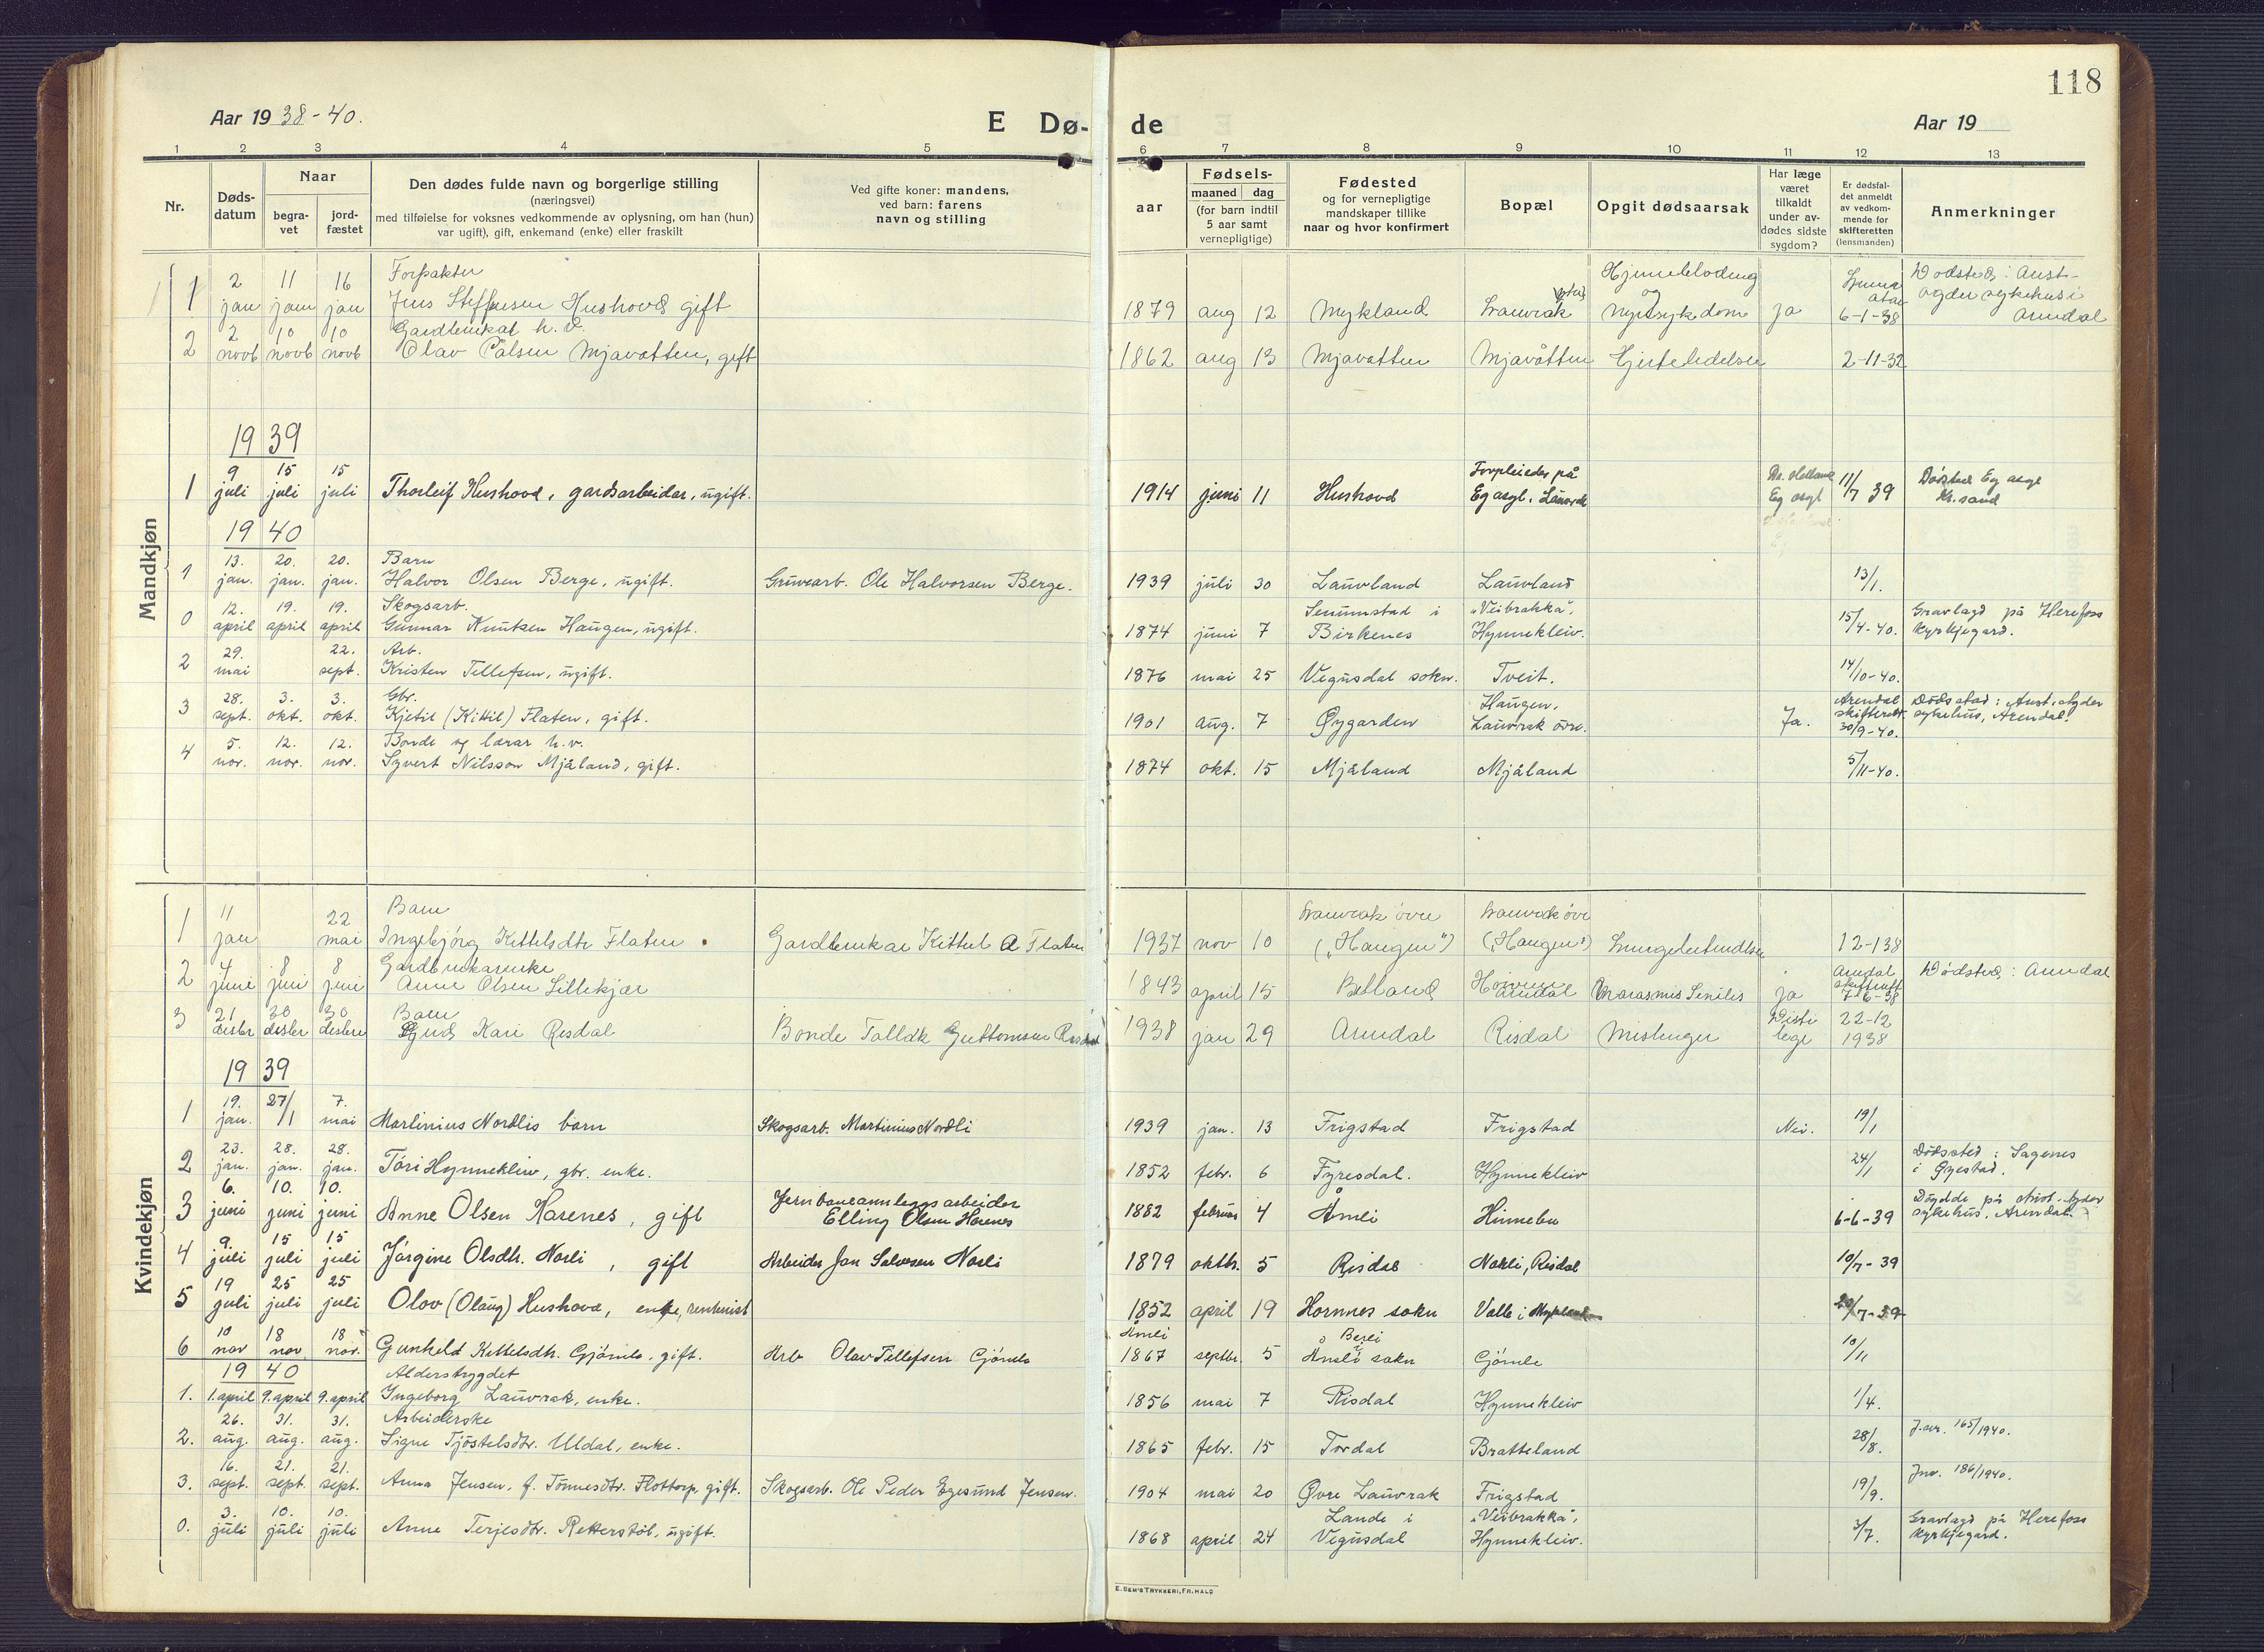 118
Aar 19 38-40.
E Dø-
de
Aar 19
1 2 3 4 5 6 7 8 9 10 11 12 13
Nr.
Døds-
datum
Naar
begra-
vet
jord-
fæstet
Den dødes fulde navn og borgerlige stilling
(næringsvei)
med tilføielse for voksnes vedkommende av oplysning, om han (hun)
var ugift), gift, enkemand (enke) eller fraskilt
Ved gifte koner: mandens,
ved barn: farens
navn og stilling
aar
Fødsels-
maaned dag
(for barn indtil
5 aar samt
vernepligtige)
Fødested
og for vernepligtige
mandskaper tillike
naar og hvor konfirmert
Bopæl
Opgit dødsaarsak
Har læge
været
tilkaldt
under av-
dødes sidste
sygdom?
Er dødsfal-
det anmeldt
av vedkom-
mende for
skifteretten
(lensmanden)
Anmerkninger
Mandkjøn
Forpakter
1 2 jan 11 jan 16 jan Jens Steffensen Hushovd gift 1879 aug 12 Mykland Lauvrak Hjerneblødning og nyresykdom Ja 6-1-38 Dødsted: Aust-
agder sykehus i
Arendal
Gardbrukar h.v.
2 2 novb 10 novb 10 novb Olav Pålsen Mjavatten, gift 1862 aug 13 Mjavatten Mjavåtten Hjertelidelse 2-11-32
1939
1 9 juli 15 juli 15 juli Thorleif Hushovd, gardsarbeider, ugift. 1914 juni 11 Hushovd Forpleiedes på
Eg asyl. Eg asyl 11/7 39 Dødsted Eg asyl
Kr.sand
1940
Barn
1 13. jan. 20. jan. 20. jan. Halvor Olsen Berge, ugift. Gruvearb. Ole Halvorsen Berge. 1939 juli 30 Lauvland Lauvland 13/1.
Skogsarb. Senumstad i „Veibrakka",
0 12. april 19. april 19. april Gunnar Knutsen Haugen, ugift. 1874 juni 7 Birkenes Hynnekleiv. 15/4-40. Gravlagd på Herefoss
kyrkjegard.
Arb.
2 29. mai 22. sept. Kristen Tellefsen, ugift. 1876 mai 25 Vegusdal sokn. Tveit. 14/10-40.
Gbr. Haugen,
3 28. sept. 3. okt. 3. okt. Kjetil (Kittil) Flaten, gift. 1901 aug. 7 Øygarden Lauvrak øvre. Ja. Arendal
skifterett
30/9-40. Dødsstad: Aust-Agder
sykehus, Arendal.
Bonde og lærar h.v.
4 5. nov. 12. nov. 12. nov. Syvert Nilsson Mjåland, gift. 1874 okt. 15 Mjåland Mjåland 5/11-40.
Kvindekjøn
Barn Lauvrak øvre Lauvrak øvre
1 11 jan 22 mai Ingebjørg Kittelsdtr Flaten Gardbrukar Kittel A Flaten 1937 nov 10 („Haugen") („Haugen") Lungebetendelse 12-1 38
Gardbrukarenke
2 4 juni 8 juni 8 juni Anne Olsen Lillekjær 1843 april 15 Belland Arendal Marasmus Senilis ja Arendal
skifterett
7-6-38 Dødsted: Arendal
Barn
3 21 desbr 30 desbr 30 desbr Gud Kari Risdal Bonde Tallak Guttormsen Risdal 1938 jan 29 Arendal Risdal Meslinger Distr
lege 22-12
1938
1939
1 19. jan. 27/1 7. mai Martinius Nordlis barn Skogsarb. Martinius Nordli 1939 jan. 13 Frigstad Frigstad Nei. 19/1
2 23. jan. 28. jan. 28. jan. Tori Hynnekleiv, gbr. enke. 1852 febr. 6 Fyresdal. Hynnekleiv 24/1 Dødssted: Sagenes
i Øyestad.
3 6. juni 10. juni 10. juni Anne Olsen Harenes, gift Jernbaneanleggsarbeider
Elling Olsen Harenes 1882 februar 4 Åmli Hinnebu 6-6-39 Døydde på Aust-Agder
sykehus. Arendal.
4 9. juli 15 juli 15 juli Jørgine Olsdtr. Norli, gift Arbeider Jon Salvesen Norli 1879 oktbr. 5 Risdal Norli, Risdal 10/7-39
5 19 juli 25 juli 25 juli Olov (Olaug) Hushovd, enke, 1852 april 19 Hornnes sokn Valle i Mykland 20/7-39
6 10 nov 18 nov 18 nov. Gunhild Kittelsdtr. Gjømle, gift. Arb Olav Tellefsen Gjømle Åmli
1867 septbr. 5 Åmli sokn Gjømle 10/11
1940
Alderstrygdet
1. 1. april 9. april 9. april Ingeborg Lauvrak, enke. 1856 mai 7 Risdal Hynnekleiv 1/4.
Arbeiderske
2. 26. aug. 31. aug. 31. aug. Signe Tjøstelsdtr. Uldal, enke. 1865 febr. 15 Tordal Bratteland 28/8. J.nr. 165/1940.
3. 16. sept. 21. sept. 21. sept. Anna Jensen, f. Tønnesdtr. Flottorp, gift. Skogsarb. Ole Peder Egesund Jensen. 1904 mai 20 Øvre Lauvrak Frigstad 19/9. Jnr. 186/1940.
Lande i „Veibrakka",
0. 3. juli 10. juli 10. juli Anne Terjesdtr. Retterstøl, ugift. 1868 april 24 Vegusdal Hynnekleiv. 3/7. Gravlagd på Herefoss
kyrkjegard.
E. SEM'S TRYKKERI, FR.HALD